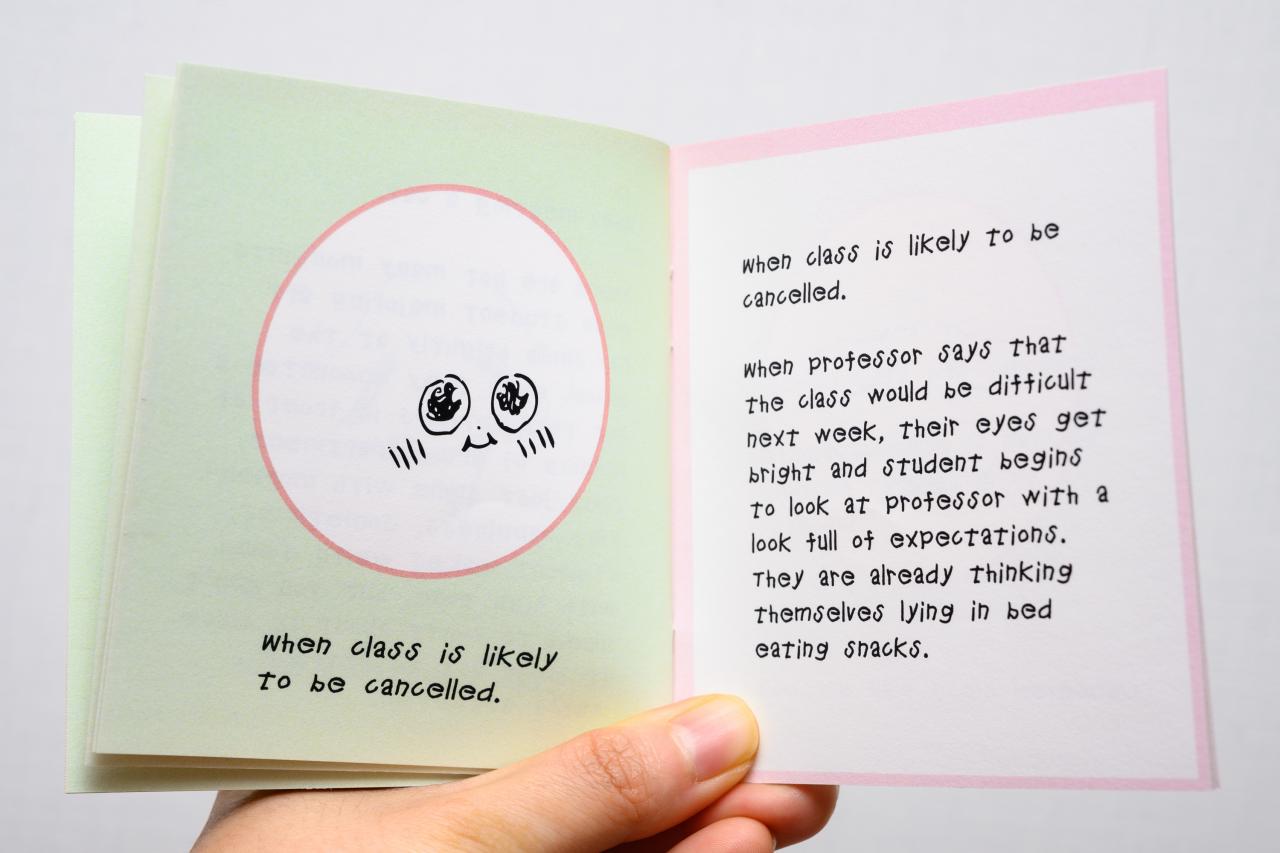 When class is likely
to be cancelled.
When class is likely to be
cancelled.
When professor says that
the class would be difficult
next week, their eyes get
bright and student begins
to look at professor with a
look full of expectations.
They are already thinking
themselves lying in bed
eating snacks.